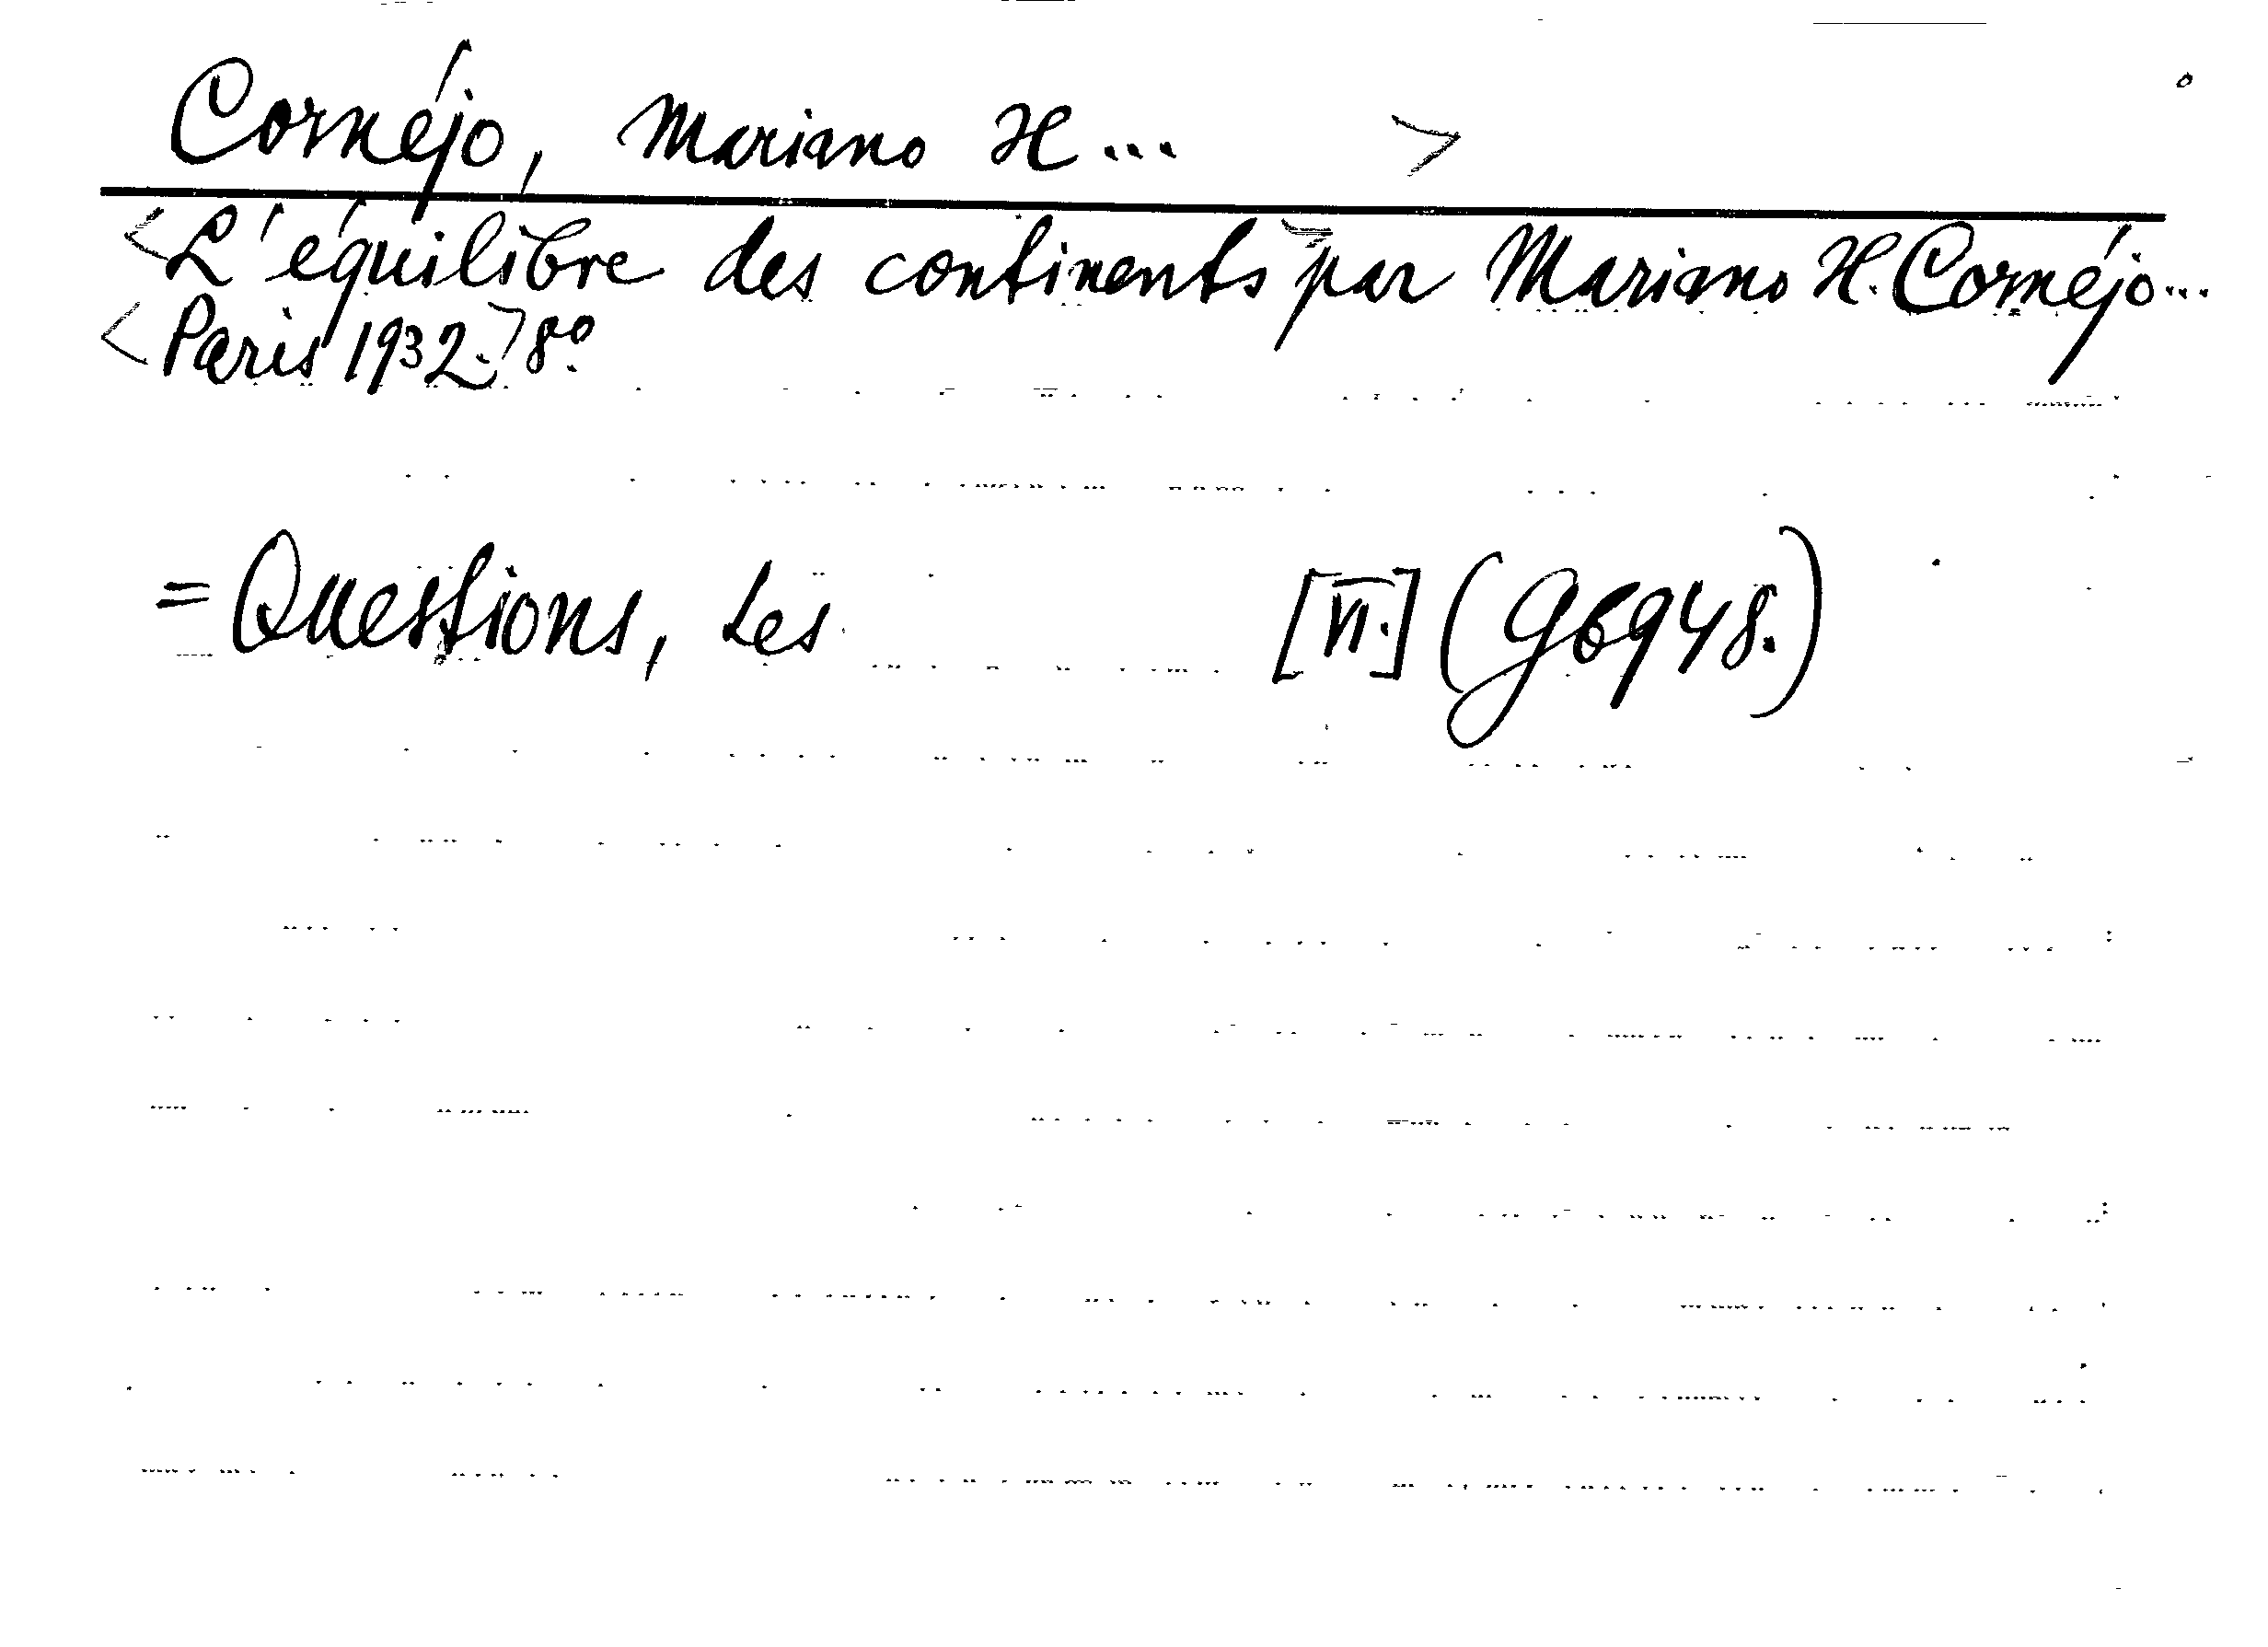 Cornéjo, Mariano H... >
<L'équilibre des continents> par Mariano H. Cornéjo...
<Paris 1932.> 8º.
= Questions, Les [VI.] (G6948.)